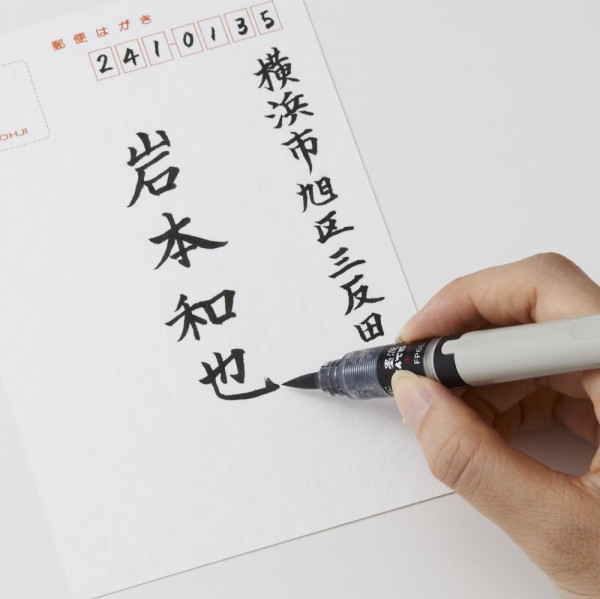 郵便はがき
241-0135
横浜市旭区三反田
岩本和也
OHJI